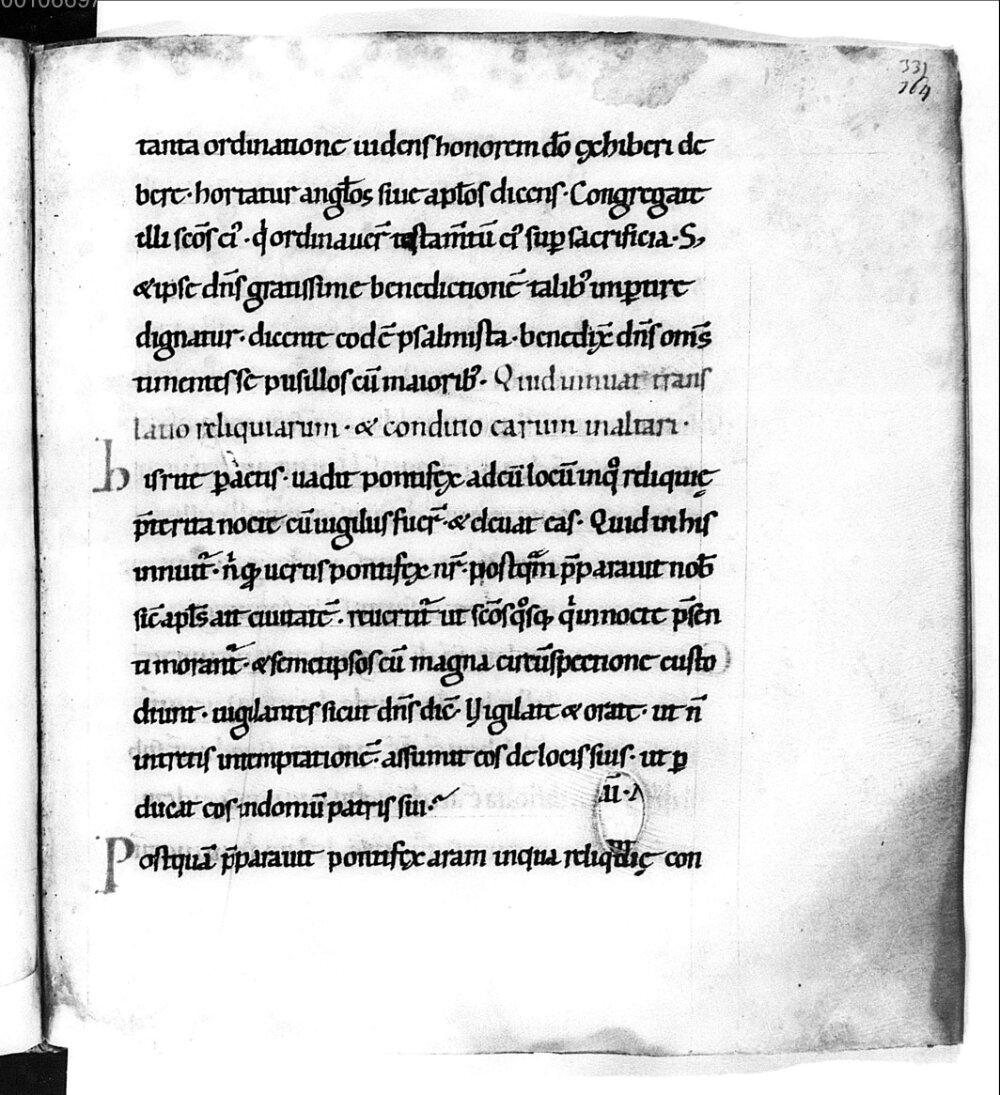 00106697
331
264
tanta ordinatione uidens honorem dō exhiberi de
bere· hortatur angl̄os siue apl̄os dicens· Congregate
illi sc̄os ei᾿· q̇ ordinauer̄ testam̄tū ei᾿ sup̱ sacrificia· S;
& ipse dn̄s gratissime benedictionē talib᾿ inp̱tire
dignatur· dicente eodē psalmista· benedix̄ dn̄s om̄s
timentes se pusillos cū maiorib᾿· Quid innuat trans
latio reliquiarum· & conditio earum in altari·
his rite p̱actis· uadit pontifęx ad eū locū in qͦ reliquię
p̄terita nocte cū uigiliis fuer̄· & eleuat eas· Quid in his
innuit᷑· n̊ qͥ uerus pontifęx nr̄· postqͣm p̄parauit nob̄
sic̄ apl̄s ait ciuitatē· reuertit᷑ ut sc̄os qͦsq; qͥ in nocte p̄sen
ti morant᷑· & semetipsos cū magna circūspectione custo
diunt· uigilantes sicut dn̄s dic̄· Vigilate & orate· ut n̄
intretis in temptationē· assumit eos de locis suis· ut p̱
ducat eos in domū patris sui·
Postquā p̄parauit pontifęx aram in qua reliquię con